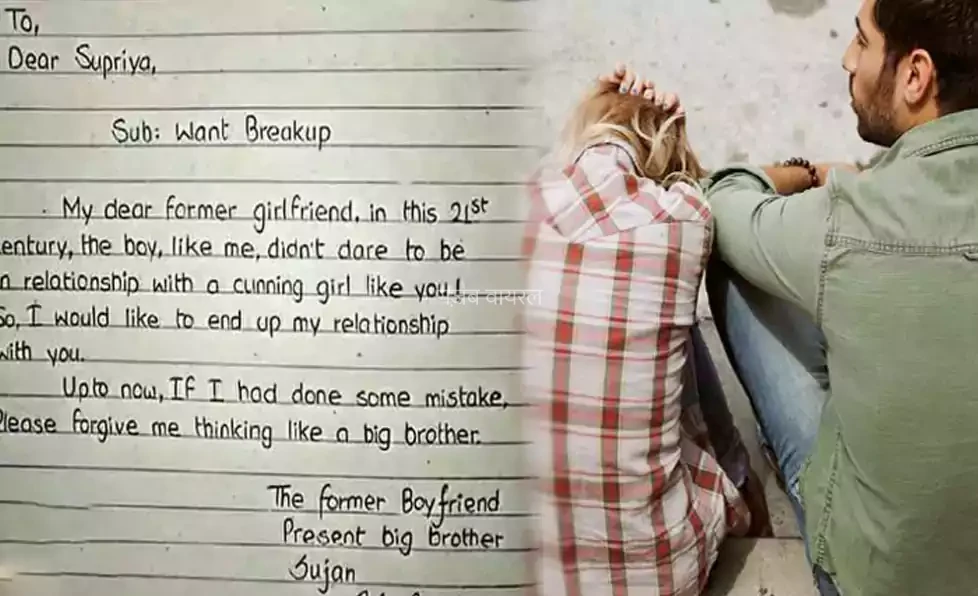 To,
Dear Supriya,
Sub: Want Breakup
My dear former girlfriend, in this 21st
entury, the boy, like me, didn't dare to be
a relationship with a cunning girl like you!
वायरल
So, I would like to end up my relationship
with you.
Upto now, If I had done some mistake,
Please forgive me thinking like a big brother.
The former Boyfriend
Present big brother
Sujan